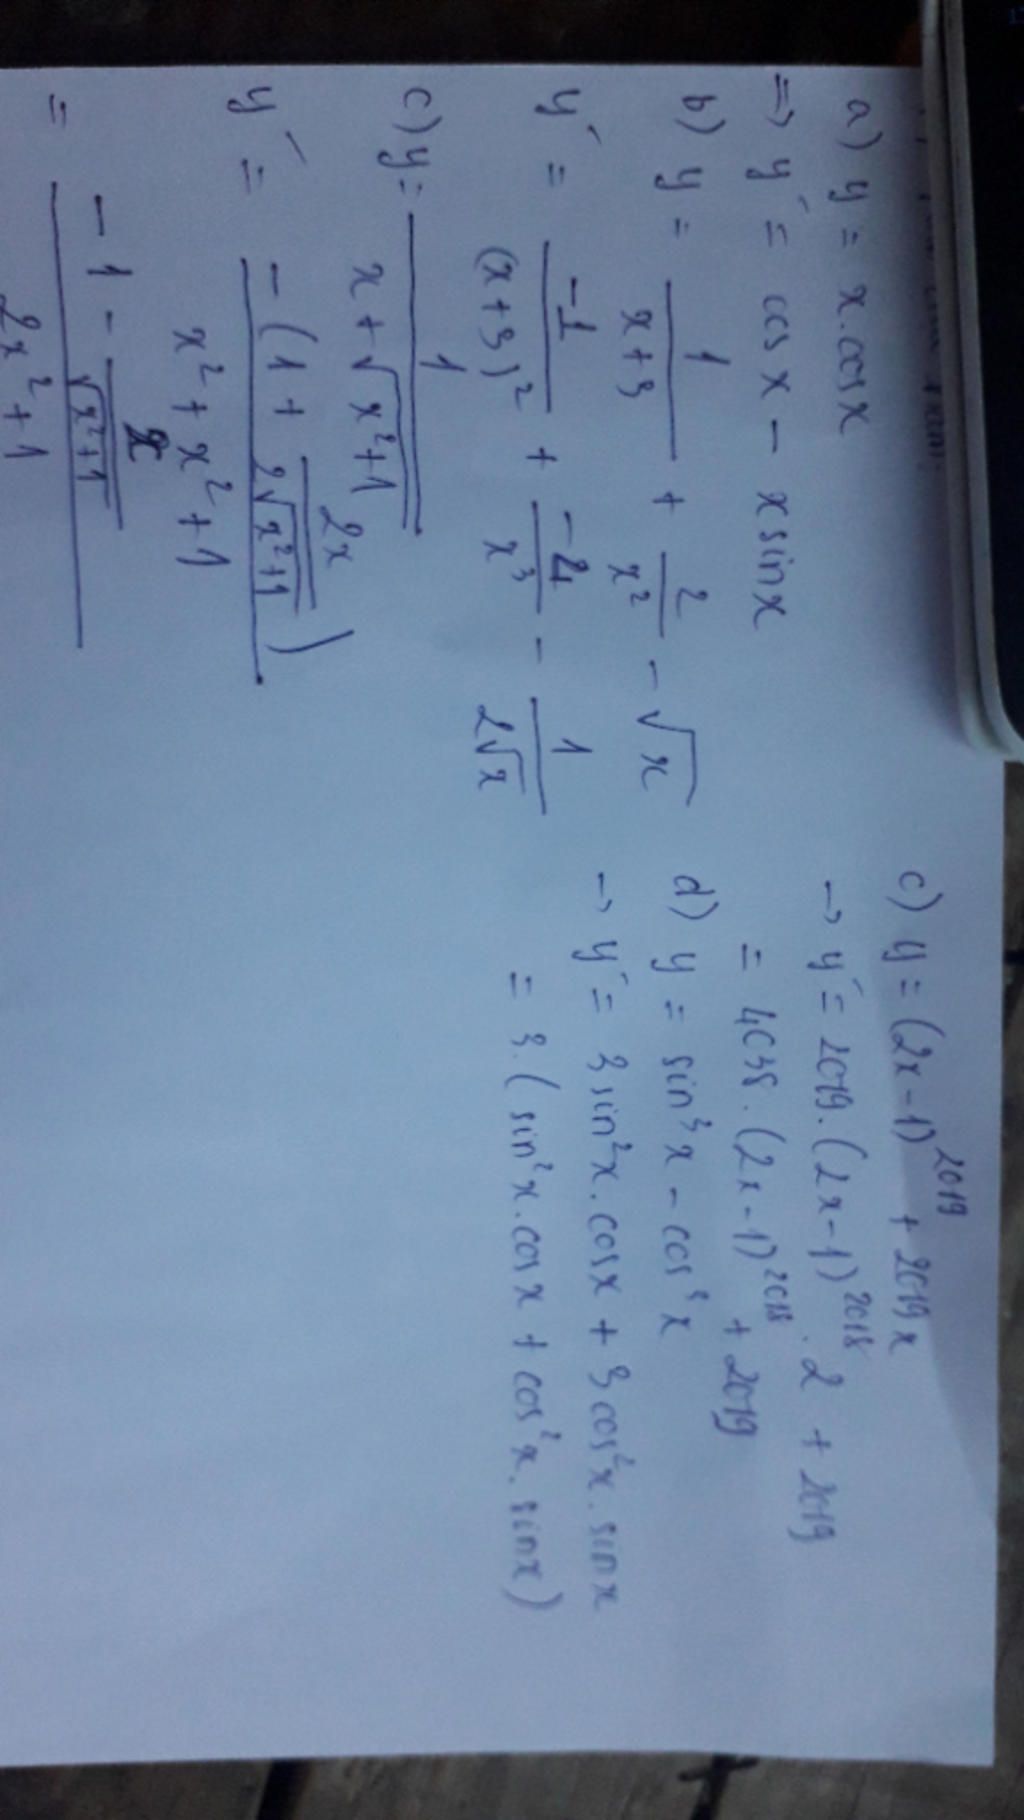 a) y = x.cosx
=> y' = cosx - xsinx
b) y = 1/(x+3) + 2/x² - √x
y' = -1/(x+3)² + -4/x³ - 1/(2√x)
c) y = 1/(x+√(x²+1))
y' = -(1 + 2x/(2√(x²+1)))/(x²+x²+1)
= (-1 - x/√(x²+1))/(2x²+1)
c) y = (2x-1)²⁰¹⁹ + 2019x
→ y' = 2019.(2x-1)²⁰¹⁸.2 + 2019
= 4038.(2x-1)²⁰¹⁸ + 2019
d) y = sin³x - cos³x
→ y' = 3sin²x.cosx + 3cos²x.sinx
= 3.(sin²x.cosx + cos²x.sinx)